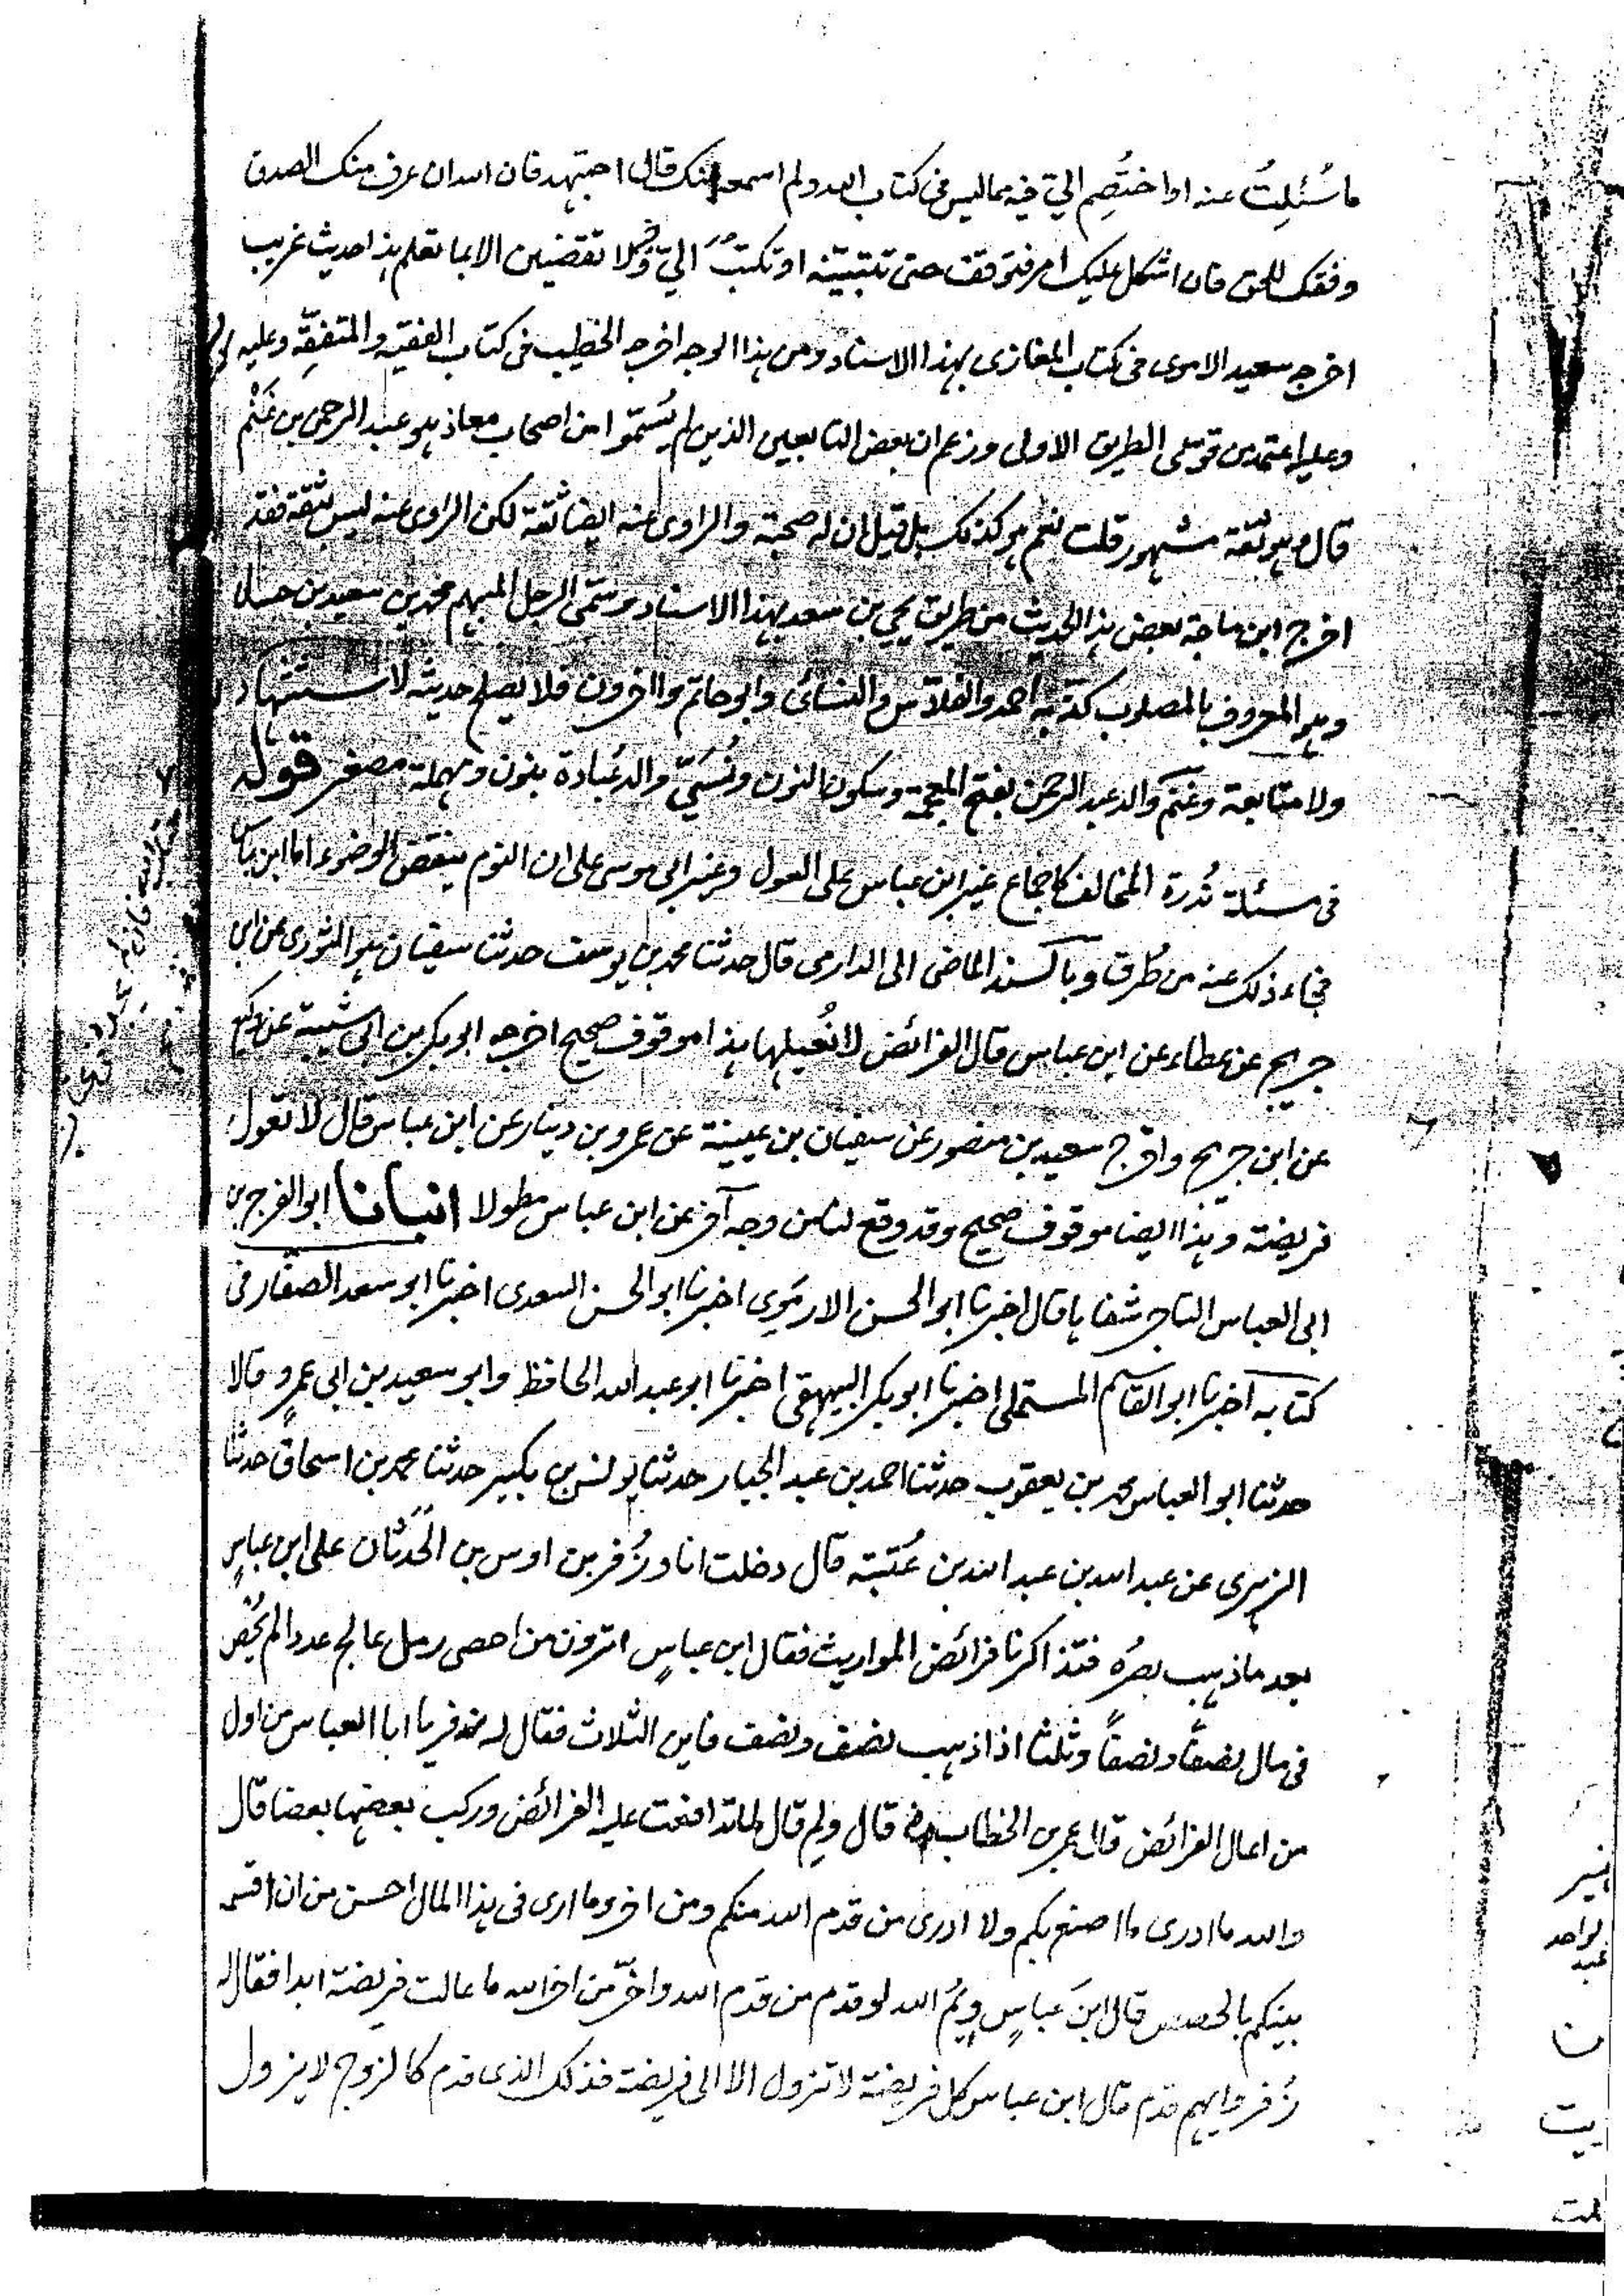 ما سُئلتُ عنه او اختُصِم اليّ فيه مما ليس في كتاب الله ولم اسمعه منك قال اجتهد فان الله ان عرف منك الصدق
وفقك للحق فان اشكل عليك امر فتوقف حتى تتبيّنه او تكتبَ اليّ فيه ولا تقضين الا بما تعلم هذا حديث غريب
اخرجه سعيد الاموى فى كتاب المغازى بهذا الاسناد ومن هذا الوجه اخرجه الخطيب فى كتاب الفقيه والمتفقّه وعليه
وعليه اعتمد من قوى على الطريق الاولى وزعم ان بعض التابعين الذين لم يُسَمّوا من اصحاب معاذ هو عبد الرحمن بن غَنْم
قال وهو ثقة مشهور قلت نعم هو كذلك بل قيل ان له صحبة والراوى عنه ايضا ثقة لكن الراوى عنه ليس بثقة فقد
اخرج ابن ماجة بعض هذا الحديث من طريق يحيى بن سعد بهذا الاسناد وسَمّى الرجل المبهم محمد بن سعيد بن حسان
وهو المعروف بالمصلوب كذّبه احمد والفلاس والنسائى وابو حاتم واخرون فلا يصلح حديثه لاستشهاد
ولا متابعة وغَنْم والد عبد الرحمن بفتح المعجمة وسكون النون ونُسَيّ والد عُبادة بنون ومهملة مصغر قوله
فى مسئلة نُدرة المخالف كاجماع غير ابن عباس على العول وغير ابى موسى على ان النوم ينقض الوضوء اما ابن عباس
فجاء ذلك عنه من طُرق وبالسند الماضى الى الدارمى قال حدثنا محمد بن يوسف حدثنا سفيان هو الثورى عن ابن
جريج عن عطاء عن ابن عباس قال الفرائض لا نُعيلها هذا موقوف صحيح اخرجه ابو بكر بن ابى شيبة عن وكيع
عن ابن جريج واخرج سعيد بن منصور عن سفيان بن عيينة عن عمرو بن دينار عن ابن عباس قال لا تعول
فريضة وهذا ايضا موقوف صحيح وقد وقع لنا من وجه آخر عن ابن عباس مطولا انبانا ابو الفرج بن
ابى العباس التاجر شفاها قال اخبرنا ابو الحسن الارمَوِى اخبرنا ابو الحسن السعدى اخبرنا ابو سعد الصفار فى
كتابه اخبرنا ابو القاسم المستملى اخبرنا ابو بكر البيهقى اخبرنا ابو عبد الله الحافظ وابو سعيد بن ابى عمرو قالا
حدثنا ابو العباس محمد بن يعقوب حدثنا احمد بن عبد الجبار حدثنا يونس بن بكير حدثنا محمد بن اسحاق حدثنا
الزهرى عن عبد الله بن عبد الله بن عُتبة قال دخلت انا وزُفر بن اوس بن الحَدَثان على ابن عباسٍ
بعد ما ذهب بصرُه فتذاكرنا فرائض المواريث فقال ابن عباسٍ اترون من احصى رمل عالج عددا لم يُحْصِ
فى مال نصفًا ونصفًا وثلثا اذا ذهب نصف ونصف فاين الثلاث فقال له زفر يا ابا العباس من اول
من اعال الفرائض قال عمر بن الخطاب رض قال ولم قال لما تدافعت عليه الفرائض وركب بعضها بعضا قال
والله ما ادرى ما اصنع بكم ولا ادرى من قدم الله منكم ومن اخر وما ارى فى هذا المال احسن من ان اقسمه
بينكم بالحصص قال ابن عباسٍ ويمُ الله لو قدم من قدم الله واخّر من اخر الله ما عالت فريضة ابدا فقال له
زُفر وايهم قدم قال ابن عباس كل فريضة لا تزول الا الى فريضة فذلك الذى قدم كالزوج لا يزول